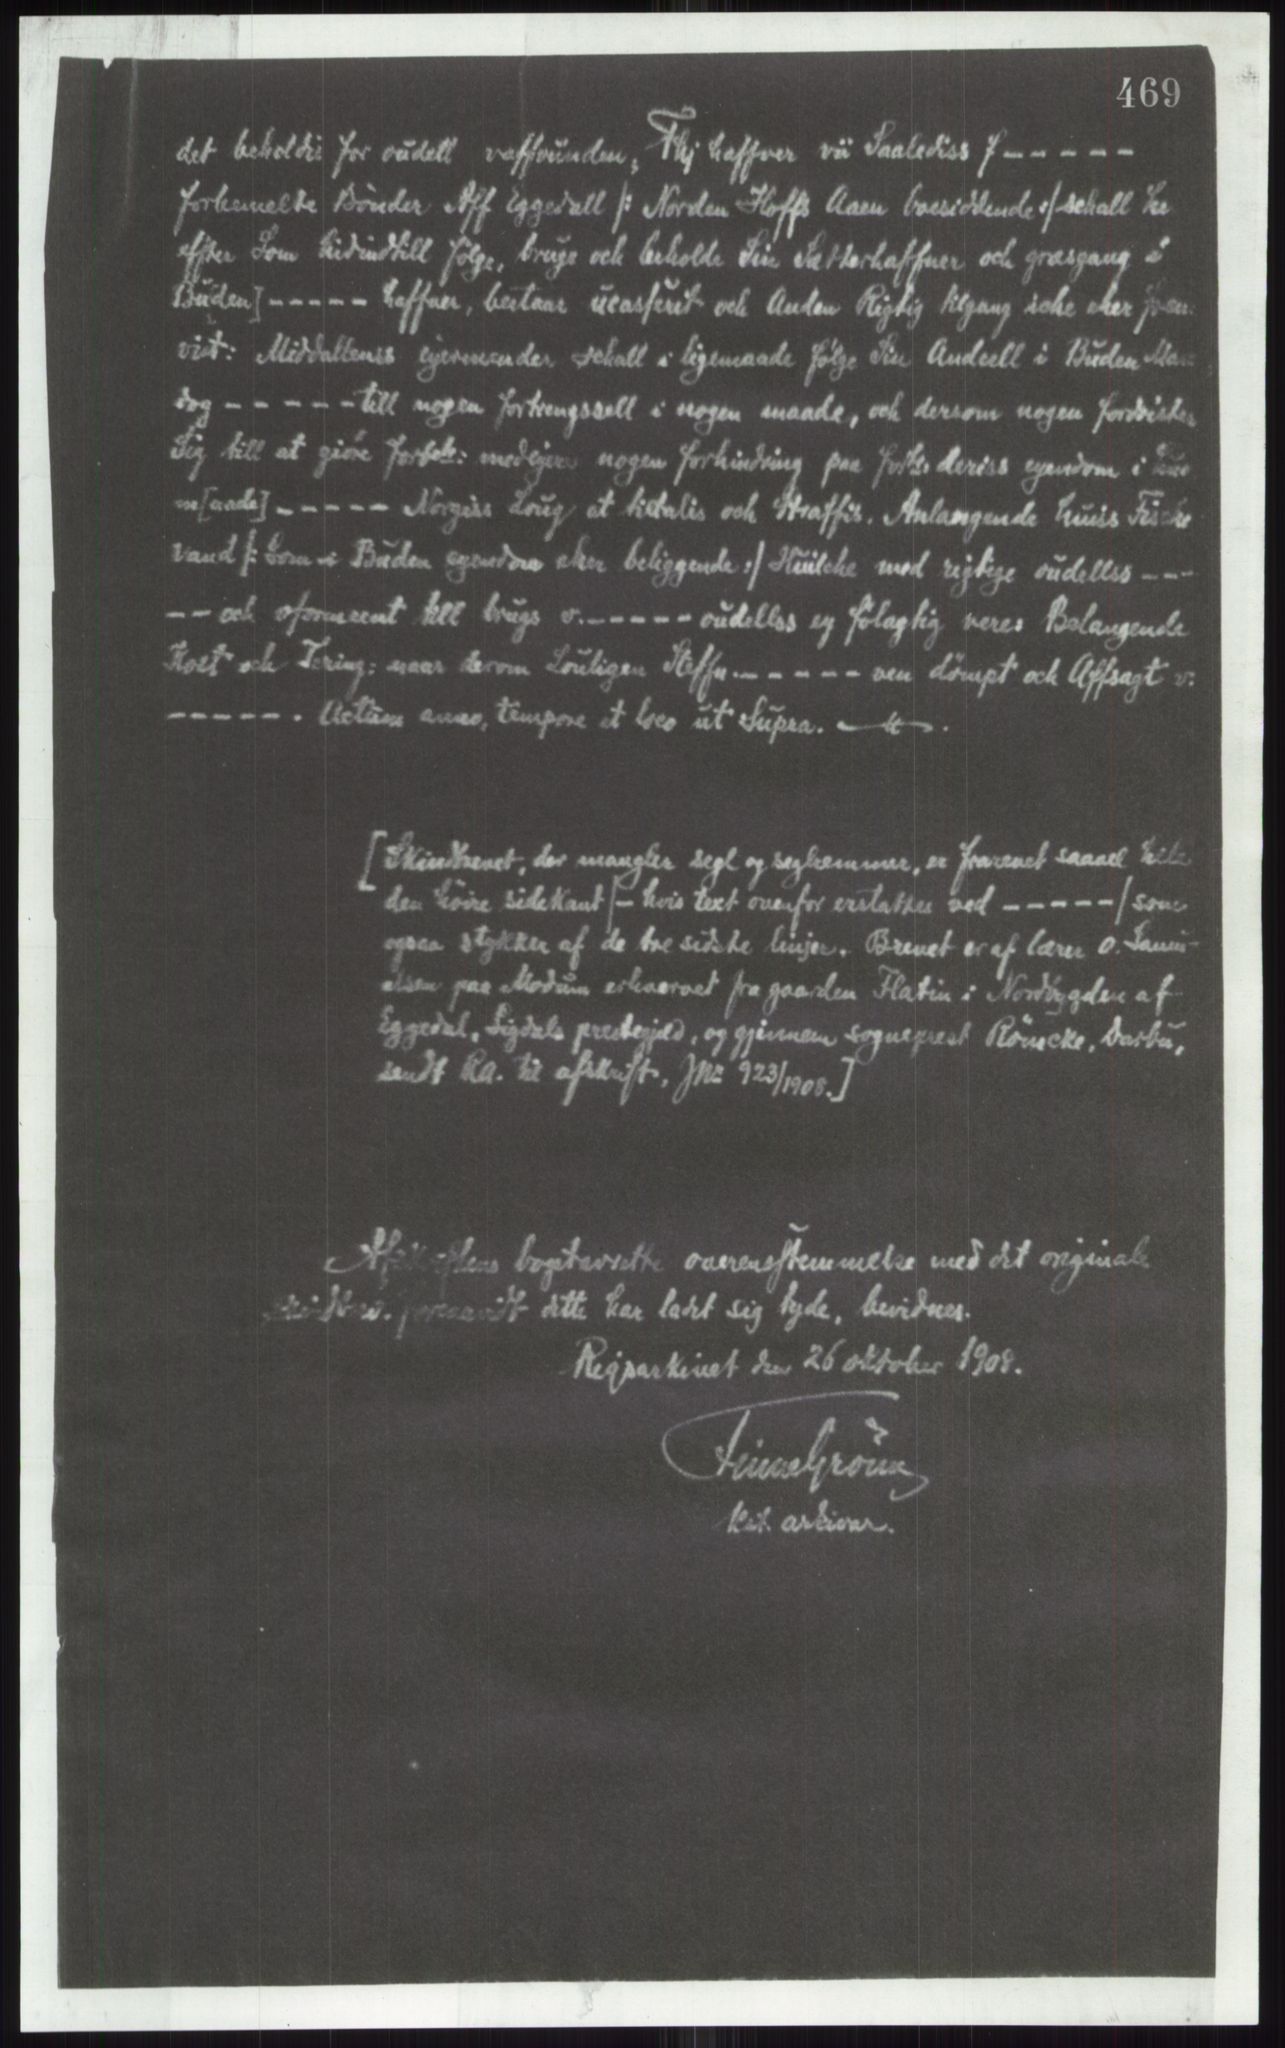 469
det beholdis for oudell uaffvunden, Thj haffver vii Saalediss f-----
forbemelte Bönder Aff Eggedall /: Norden Hoffs Aaen boesiddende :/ schall he
effter Som hidindtill følge, bruge och beholde Sin Sætterhaffner och græsgang i
Buden] ----- haffner, bestaar ucasserit och Anden Rigtig Adgang iche eher
vist: Middallenss eyermænder schall i ligemaade følge Sin Andeell i Buden Mar-
dog ------ till nogen fortrengssell i nogen maade, och dersom nogen fordrister
Sig till at giöre forbte: medeyere nogen forhindring paa forbte deriss eyendom i
m[aade] ----- Norgiss Loug at tiltalis och Straffis. Anlangende huiss Fische
vand /: Som i Buden eyendom eher beliggende :/ Huilche med rigtige oudellss ---
-- och till brugs o. ----- oudellss ey følagtig vere. Belangende
Kost och Tering: naar derom Louligen Steffn. ----- ven dömpt och Affsagt v.
-----. Actum anno, tempore et loco ut Supra.
[Skindbrevet, der mangler segl og seglremmer, er frarevet saavel hele
den høire sidekant /- hvis text ovenfor erstattes ved -----/ som
ogsaa stykker af de tre sidste linjer. Brevet er af lærer O. Samu-
elsen paa Modum erhvervet fra gaarden Flatin i Nordbygden af
Eggedal, Sigdals prestegjeld, og gjennem sogneprest Röncke, Darbu,
sendt RA. til afskrift, J№ 923/1908.]
Afskriftens bogstavrette overensstemmelse med det originale
skindbrev, forsaavidt dette har ladet sig tyde, bevidnes.
Rigsarkivet den 26 oktober 1908.
Finne Grönn
kst. arkivar.